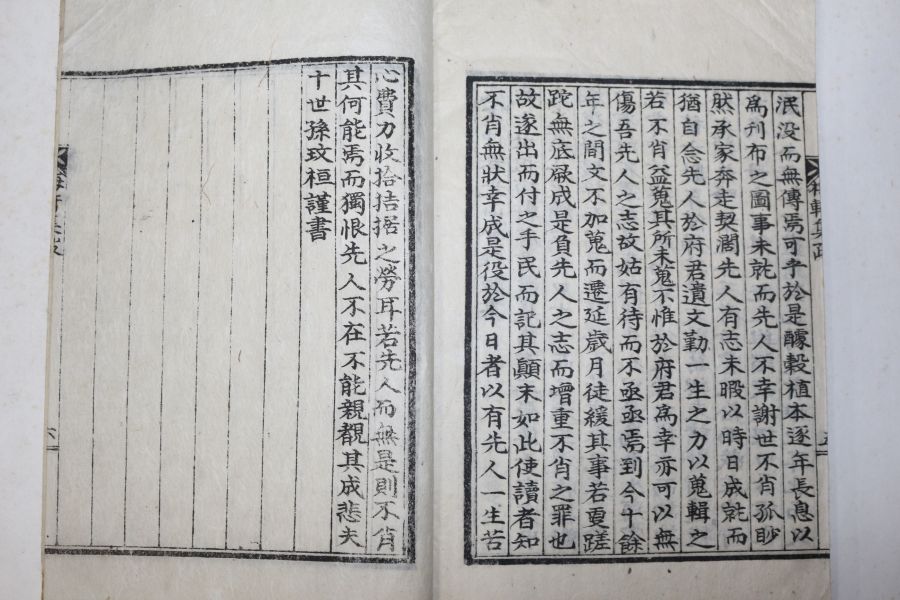 泯没而無傳焉可乎於是醵穀植本逐年長息以
爲刋布之圖事未就而先人不幸謝世不肖孤眇
然承家奔走契濶先人有志未暇以時日成就而
猶自念先人於府君遺文勤一生之力以蒐輯之
若不肖益蒐其所未蒐不惟於府君爲幸亦可以無
傷吾先人之志故姑有待而不亟亟焉到今十餘
年之間文不加蒐而遷延歲月徒緩其事若更蹉
跎無底厎成是負先人之志而增重不肖之罪也
故遂出而付之手民而記其顛末如此使讀者知
不肖無狀幸成是役於今日者以有先人一生苦
心費力收拾拮据之勞耳若先人而無是則不肖
其何能焉而獨恨先人不在不能親覩其成悲夫
十世孫玟桓謹書
六